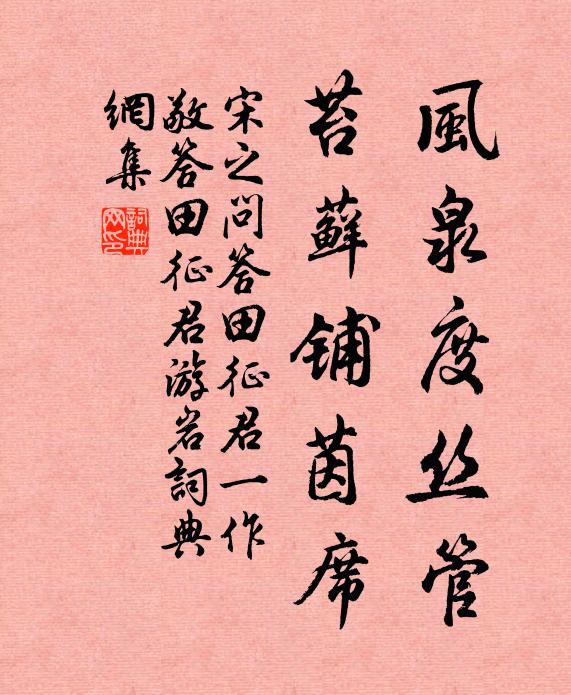 風泉度丝管
苔蘚铺茵席
宋之问答田征君一作
敬答田征君游岩詞典
網集
詞典网印